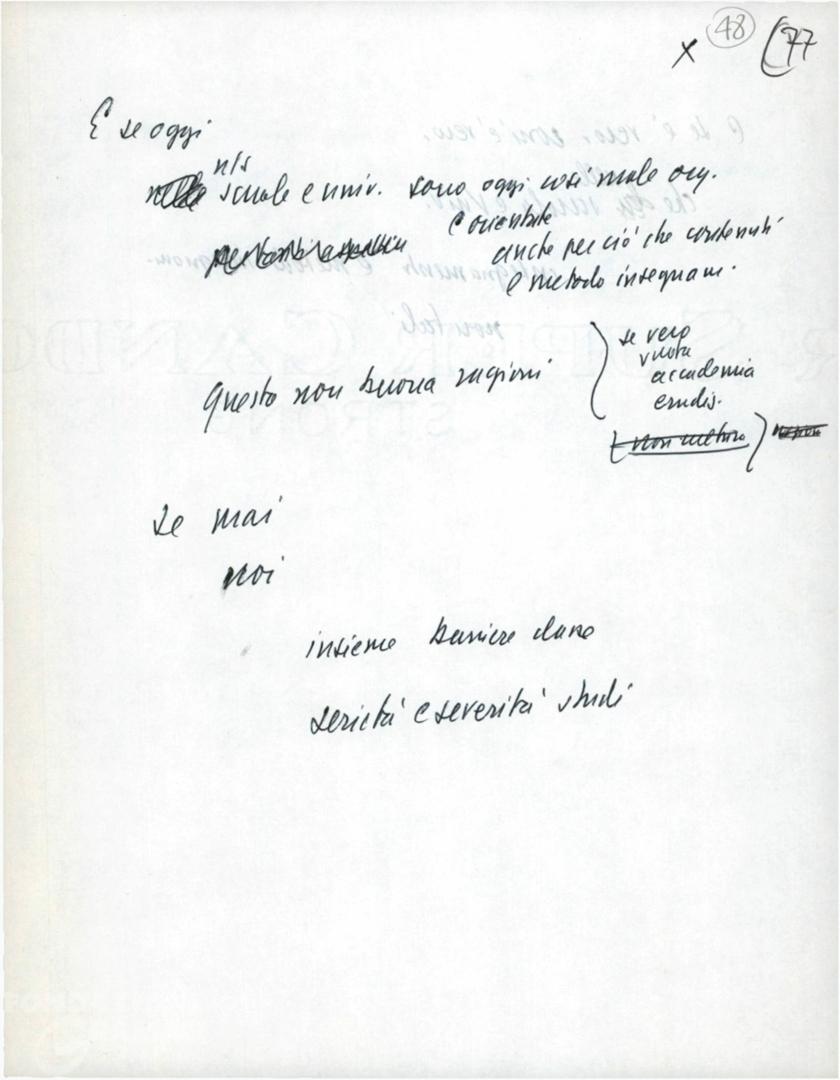 x 48 77
E se oggi
n/s
scuole e univ. sono oggi così male org.
e orientate
anche per ciò che contenuti
e metodo insegnam.
Questo non buona ragioni
se vero
vuota
accademia
erudiz.
se mai
noi
insieme barriere classe
serietà e severità studi